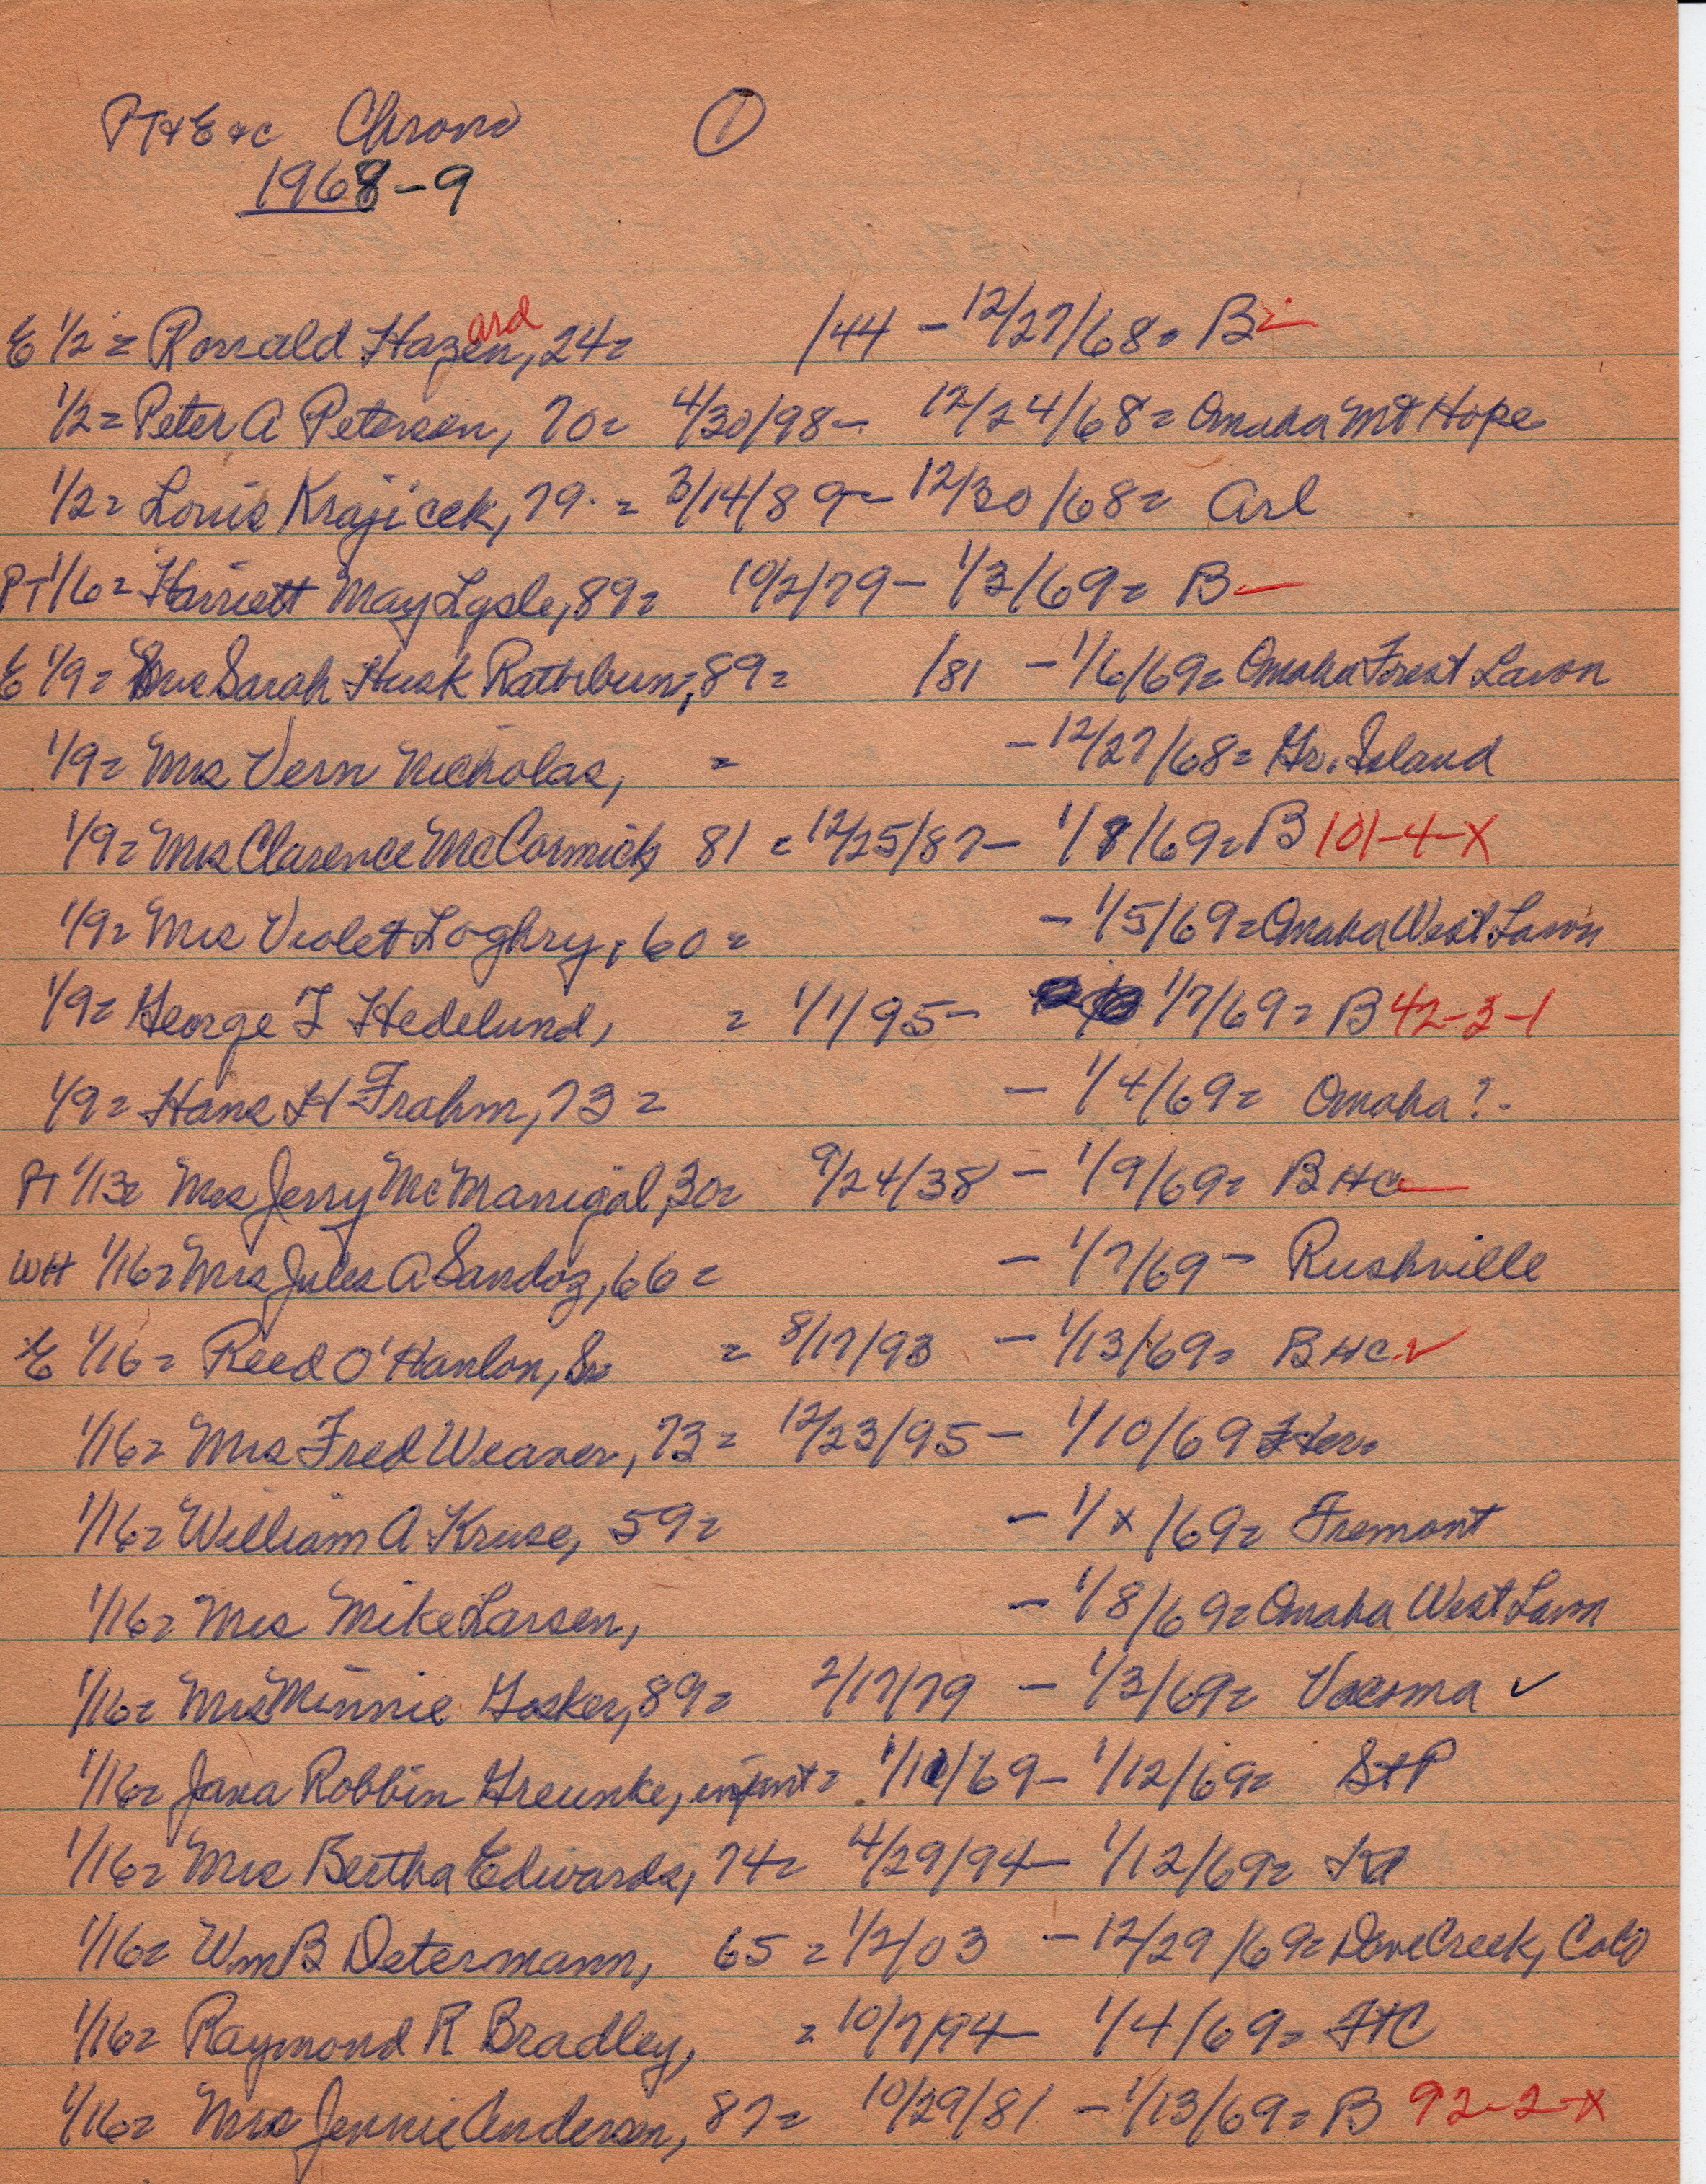 PT & E & C Chrono ①
1968-9
E 1/2 = Ronald Hazen, ard 24= /44 - 12/27/68= B
1/2= Peter A Petersen, 70= 4/30/98- 12/24/68= Omaha Mt Hope
1/2= Louis Krajicek, 79 = 3/14/89- 12/30/68= Arl
PT 1/6= Harriett May Lysle, 89= 10/2/79- 1/3/69= B
E 1/9= Mrs Sarah Husk Rathbun, 89= /81 - 1/6/69= Omaha Forest Lawn
1/9= Mrs Vern Nicholas, = - 12/27/68= Gr. Island
1/9= Mrs Clarence McCormick 81 = 12/25/87- 1/8/69= B 101-4-X
1/9= Mrs Violet Loghry, 60= - 1/5/69= Omaha West Lawn
1/9= George T Hedelund, = 1/1/95- 1/7/69= B 42-3-1
1/9= Hans H Frahm, 73= - 1/4/69= Omaha?
PT 1/13= Mrs Jerry McManigal, 30= 9/24/38 - 1/9/69= BHC
WH 1/16= Mrs Jules A Sandoz, 66= - 1/7/69- Rushville
E 1/16= Reed O'Hanlon, Sr = 8/17/93 - 1/13/69= BHC ✓
1/16= Mrs Fred Weaver, 73= 12/23/95- 1/10/69 Her.
1/16= William A Kruse, 59= - 1/x/69= Fremont
1/16= Mrs Mike Larsen, - 1/8/69= Omaha West Lawn
1/16= Mrs Minnie Gosker, 89= 2/17/79 - 1/3/69= Vacoma ✓
1/16= Jana Robbin Greunke, infant= 1/11/69- 1/12/69= St P
1/16= Mrs Bertha Edwards, 74= 4/29/94- 1/12/69=
1/16= Wm B Determann, 65 = 1/2/03 - 12/29/69= Dove Creek, Colo
1/16= Raymond R Bradley, = 10/7/94- 1/4/69= FtC
1/16= Mrs Jennie Andersen, 87= 10/29/81 - 1/13/69= B 92-2-X